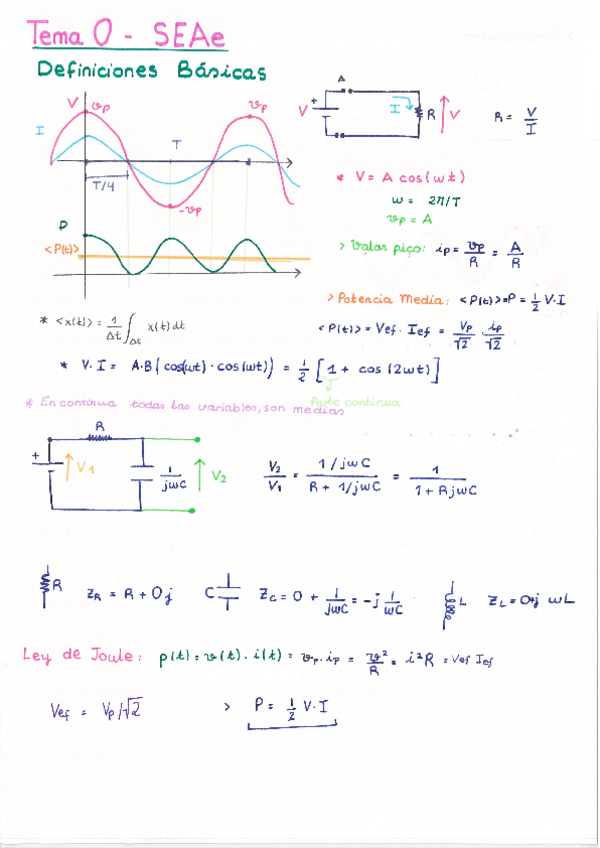 Tema 0 - SEAe
Definiciones Básicas
V vp vp
I
T
T/4
-vp
P
<P(t)>
A
V + I R V
R = V/I
* V = A cos(wt)
w = 2π/T
vp = A
> Valor pico: ip = vp/R = A/R
> Potencia Media: <P(t)> = P = 1/2 V·I
* <x(t)> = 1/Δt ∫Δt x(t) dt
<P(t)> = Vef · Ief = Vp/√2 · ip/√2
* V·I = A·B (cos(wt) · cos(wt)) = 1/2 [1 + cos(2wt)]
Parte continua
* En continua todas las variables, son medias
R
+ V1 1/jwC V2
V2/V1 = 1/jwC / R + 1/jwC = 1 / 1 + RjwC
R ZR = R + 0j
C Zc = 0 + 1/jwC = -j 1/wC
L ZL = 0+j wL
Ley de Joule: p(t) = v(t) · i(t) = vp · ip = v²/R = i²R = Vef Ief
Vef = Vp/√2
> P = 1/2 V·I